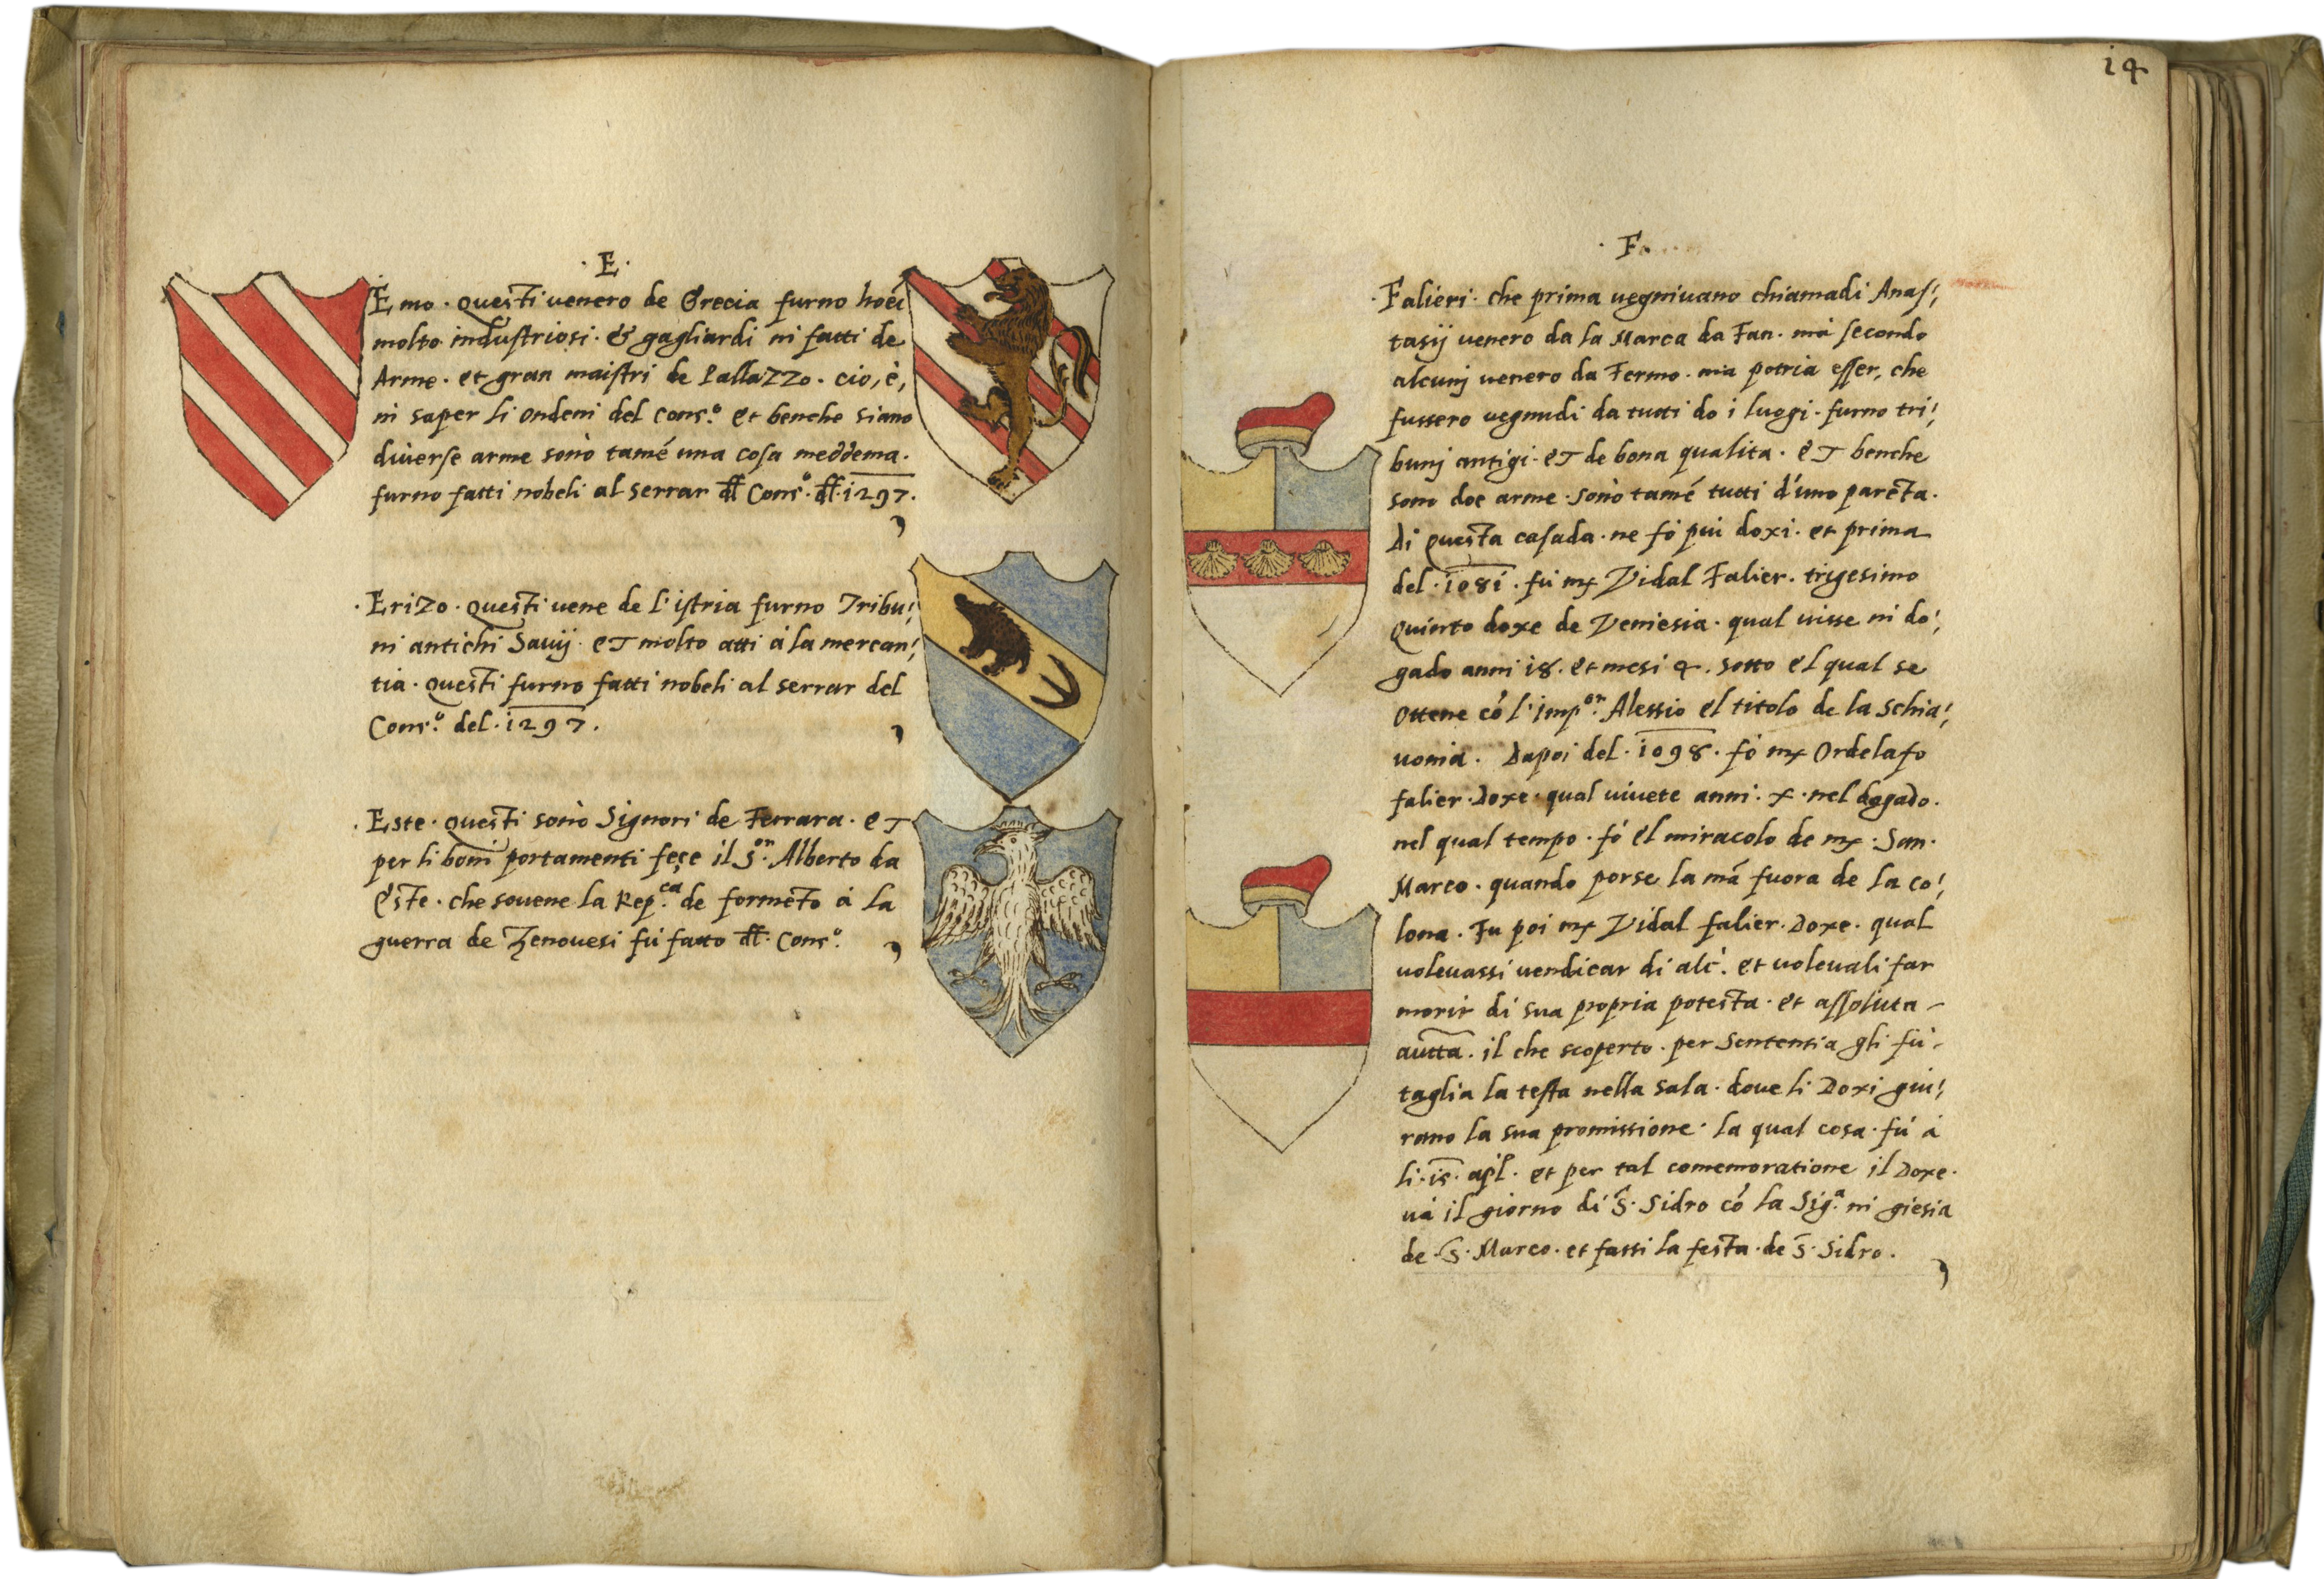 · E ·
Emo · questi uenero de Grecia furno hoēi
molto industriosi · & gagliardi ni fatti de
Arme · et gran maistri de Pallazzo · cio, è,
ni saper li ordeni del Cons.º et benche siano
diuerse arme sonò tamē una cosa meddema ·
furno fatti nobeli al serrar dl Cons.º dl · 1297 ·
· Erizo · questi uene de l'istria furno Tribu
ni antichi Sauij · et molto atti à la mercan
tia · questi furno fatti nobeli al serrar del
Cons.º del · 1297 ·
· Este · questi sonò Signori de Ferrara · et
per li boni portamenti feçe il S.or Alberto da
Este · che souene la Rep.ca de formēto à la
guerra de Zenouesi fù fatto dl · Cons.º
14
· F ·
· Falieri · che prima uegniuano chiamadi Anas
tasij uenero da la Marca da Fan · mà secondo
alcunj uenero da Fermo · ma potria esser, che
fussero uegnudi da tutti do i luogi · furno tri
bunj antigi · et de bona qualita · et benche
sono doe arme · sonò tamē tutti d'uno parēta ·
di questa casada · ne fò piu doxi · et prima
del · 1081 · fù mx Vidal Falier · trigesimo
quinto doxe de Veniesia · qual uisse ni do
gado anni 18 · et mesi 4 · sotto el qual se
ottene cō l'Imp.or Alessio el titolo de la Schia
uonia · dapoi del · 1098 · fò mx Ordelafo
falier · Doxe · qual uiuete anni · x · nel dogado ·
nel qual tempo · fò el miracolo de mx · San ·
Marco · quando porse la mā fuora de la co
lona · Fu poi mx Vidal falier · Doxe · qual
uoleuassi uendicar di alc̄ · et uoleuali far
morir di sua propria potesta · et assoluta
autta · il che scoperto · per Sententia gli fù
taglia la testa nella sala · doue li Doxi giu
rano la sua promissione · la qual cosa · fù à
li · 15 · apl · et per tal comemoratione il Doxe ·
uà il giorno di S · Sidro cō la Sig.a ni giesia
de · S · Marco · et fassi la festa · de S · Sidro ·